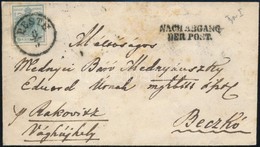 PESTH
NACH ABGANG
DER POST.
Méltóságos
Mednyei Báró Mednyánszky
Eduard Urnak
p Rakovitz
Vághújhely
Beczkó